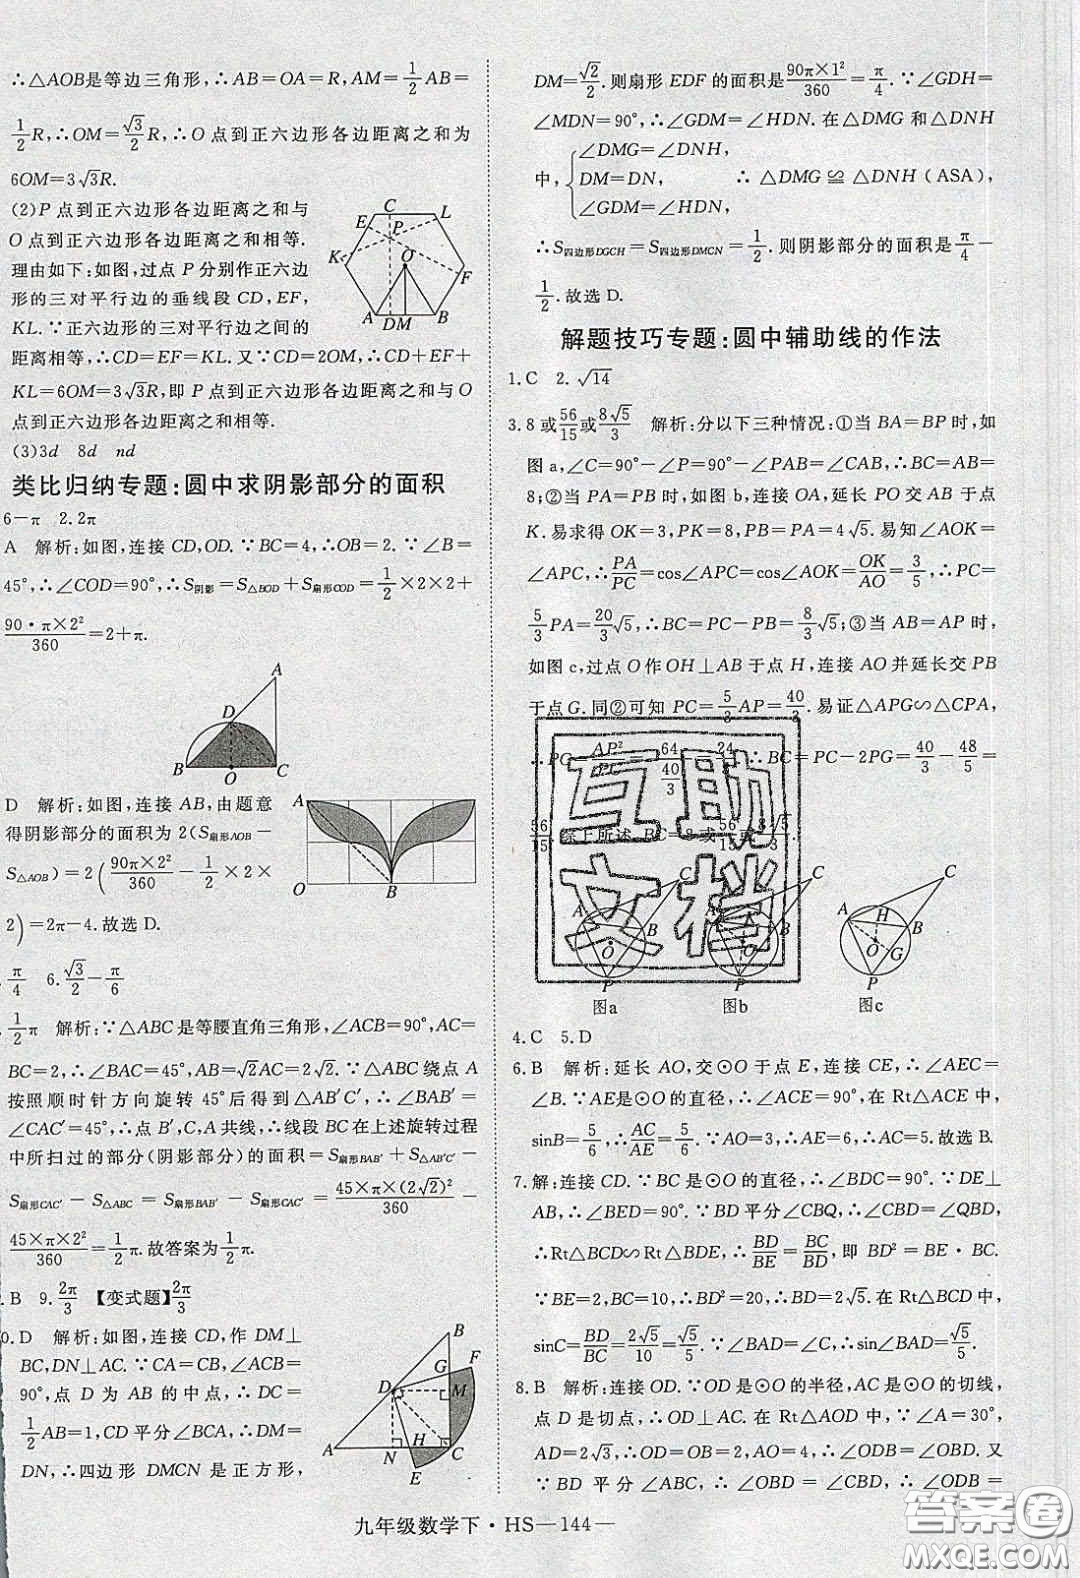 ∴△AOB是等边三角形,∴AB=OA=R,AM=1/2AB=
1/2R,∴OM=√3/2R,∴O点到正六边形各边距离之和为
6OM=3√3R.
(2)P点到正六边形各边距离之和与
O点到正六边形各边距离之和相等.
理由如下:如图,过点P分别作正六边
形的三对平行边的垂线段CD,EF,
KL.∵正六边形的对边之间的
距离相等,∴CD=EF=KL.∴CD+EF+
KL=6OM=3√3R,即P点到正六边形各边距离之和与O
点到正六边形各边距离之和相等.
(3)3d 8d nd
C
L
E
P
K
O
F
A
D
M
B
类比归纳专题:圆中求阴影部分的面积
6-π 2.2π
A 解析:如图,连接CD,OD.∵BC=4,∴OB=2.∵∠B=
45°,∴∠COD=90°,∴S阴影=S△BOD+S扇形COD=1/2×2×2+
90·π×2²/360=2+π.
A
D
B
O
C
D 解析:如图,连接AB,由题意
得阴影部分的面积为2(S扇形AOB-
S△AOB)=2(90π×2²/360-1/2×2×
2)=2π-4.故选D.
A
B
π/4 6.√3/2-π/6
1/2π 解析:∵△ABC是等腰直角三角形,∠ACB=90°,AC=
BC=2,∴∠BAC=45°,AB=√2AC=2√2.∵△ABC绕点A
按照顺时针方向旋转45°后得到△AB′C′,∴∠BAB′=
∠CAC′=45°,∴点B′,C,A共线,∴线段BC在上述旋转过程
中所扫过的部分(阴影部分)的面积=S扇形BAB′+S△AB′C′-
S扇形CAC′-S△ABC=S扇形BAB′-S扇形CAC′=45×π×(2√2)²/360-
45×π×2²/360=1/2π.故答案为1/2π.
.B 9.2π/3 【变式题】2π/3
0.D 解析:如图,连接CD,作DM⊥
BC,DN⊥AC.∵CA=CB,∠ACB=
90°,点D为AB的中点,∴DC=
1/2AB=1,CD平分∠BCA.∴DM=
DN,∴四边形DMCN是正方形,
B
G
F
D
M
H
A
N
C
E
DM=√2/2.则扇形EDF的面积是90π×1²/360=π/4.∵∠GDH=
∠MDN=90°,∴∠GDM=∠HDN.在△DMG和△DNH
中,{∠DMG=∠DNH,
DM=DN,
∠GDM=∠HDN, ∴△DMG≌△DNH(ASA),
∴S四边形DGCH=S四边形DMCN=1/2.则阴影部分的面积是π/4-
1/2.故选D.
解题技巧专题:圆中辅助线的作法
1.C 2.√14
3.8或56/15或8√5/3 解析:分以下三种情况:①当BA=BP时,如
图a,∠C=90°-∠CAB=90°-∠PAB=∠APC,∴BC=AB=
8;②当PA=PB时,如图b,连接OA,延长PO交AB于点
K.易求得OK=3,PK=8,PB=PA=4√5.易知∠AOK=
∠APC,∴PA/PC=cos∠APC=cos∠AOK=OK/AO=3/5,∴PC=
5/3PA=20/3√5,∴BC=PC-PB=8/3√5;③当AB=AP时,
如图c,过点O作OH⊥AB于点H,连接AO并延长交PB
于点G.同②可知PC=5/3AP=40/3.易证△APG∽△CPA,
∴BC=PC-2PG=40/3-48/5=
56/15.综上所述,BC=8或56/15或8√5/3.
C
A
B
O
P
图a
C
A
K
B
O
P
图b
C
A
H
B
O
G
P
图c
4.C 5.D
6.B 解析:延长AO,交⊙O于点E,连接CE,∴∠AEC=
∠B.∵AE是⊙O的直径,∴∠ACE=90°,在Rt△ACE中,
sinB=5/6,∴AC/AE=5/6.∵AO=3,∴AE=6,∴AC=5.故选B.
7.解:连接CD.∵BC是⊙O的直径,∴∠BDC=90°.∵DE⊥
AB,∴∠BED=90°.∵BD平分∠CBQ,∴∠CBD=∠QBD,
∴Rt△BCD∽Rt△BDE,∴BD/BE=BC/BD,即BD²=BE·BC.
∵BE=2,BC=10,∴BD²=20,BD=2√5.在Rt△BCD中,
sinC=BD/BC=2√5/10=√5/5.∵∠BAD=∠C,∴sin∠BAD=√5/5.
8.B 解析:连接OD.∵OD是⊙O的半径,AC是⊙O的切线,
点D是切点,∴OD⊥AC.在Rt△AOD中,∵∠A=30°,
AD=2√3,∴OD=OB=2,AO=4,∴∠ODB=∠OBD.又
∵BD平分∠ABC,∴∠OBD=∠CBD,∴∠ODB=
互助
文档
九年级数学下·HS—144—
答案圈
MXQE.COM